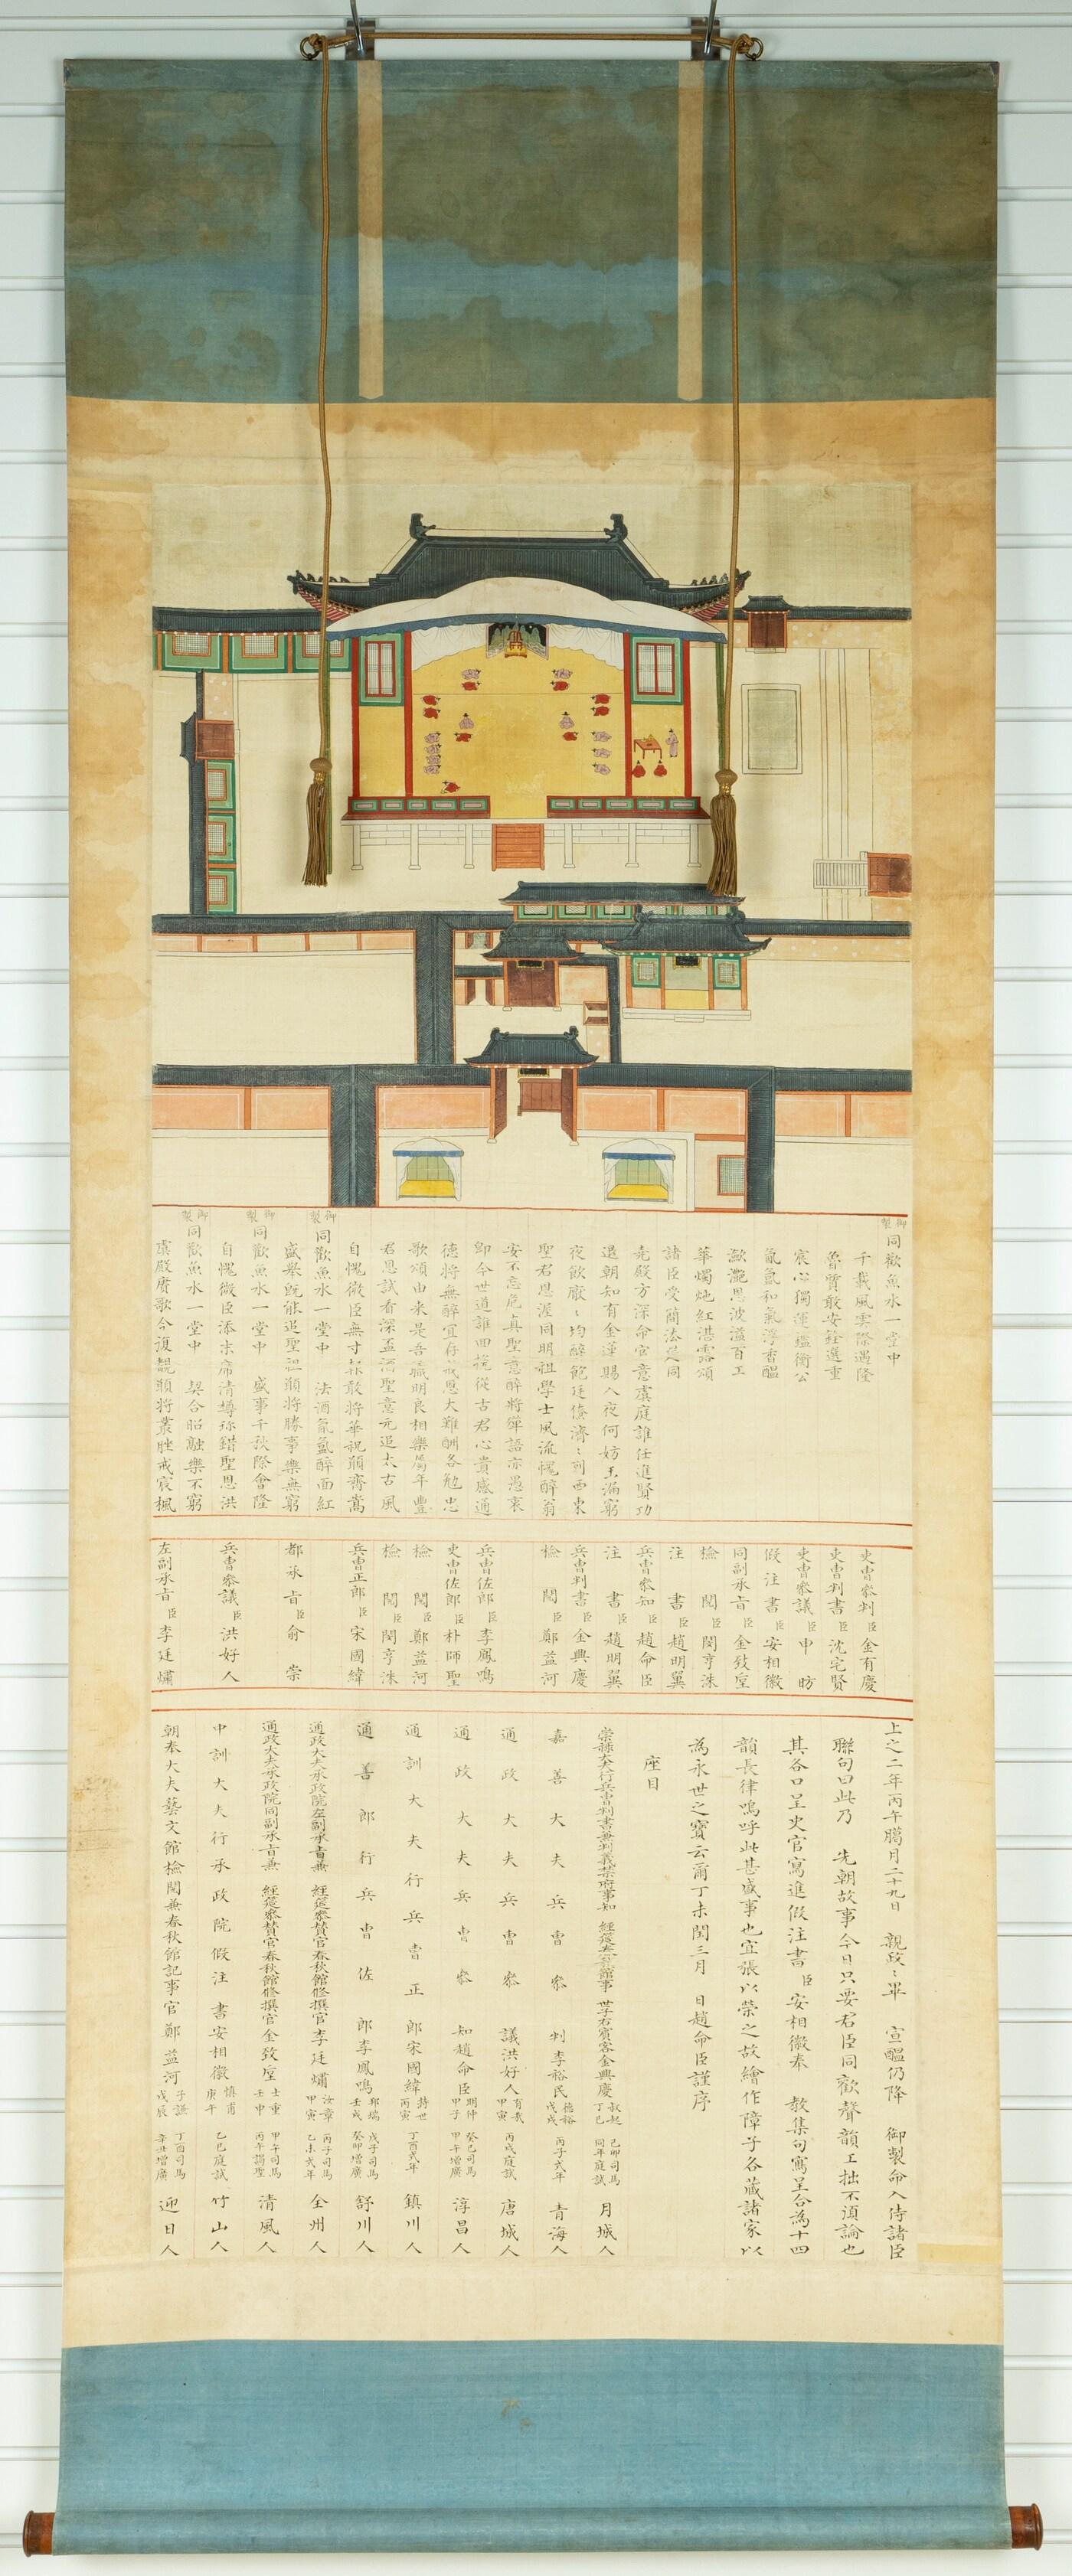 御製
同歡魚水一堂中
千載風雲際遇隆
魯質敢安銓選重
宸心獨運鑑衡公
氤氳和氣浮香醞
瀲灩恩波溢百工
華燭灺紅湛露頌
諸臣受簡法筵同
先殿方深命官意虞庭誰任進賢功
退朝知有金蓮賜入夜何妨玉漏窮
夜飮厭〻均醉飽廷僚濟〻列西東
聖君恩渥同明祖學士風流愧醉翁
安不忘危眞聖意醉將狂語亦愚衷
卽今世道誰回挽從古君心貴感通
德將無醉宜存戒恩大難酬各勉忠
歌頌由來是吾職明良相樂屬年豐
君恩試看深盃酒聖意元追太古風
自愧微臣無寸補敢將華祝願齊嵩
御製
同歡魚水一堂中 法酒氤氳醉面紅
盛擧旣能追聖祖願將勝事樂無窮
御製
同歡魚水一堂中 盛事千秋際會隆
自愧微臣添末席淸樽珍錯聖恩洪
御製
同歡魚水一堂中 契合昭融樂不窮
虞殿賡歌今復覩願將叢脞戒宸楓
吏曹參判臣金有慶
吏曹判書臣沈宅賢
吏曹參議臣申昉
假注書臣安相徽
同副承旨臣金致垕
檢閱臣閔亨洙
注書臣趙明翼
兵曹參知臣趙命臣
注書臣趙明翼
兵曹判書臣金興慶
檢閱臣鄭益河
兵曹佐郎臣李鳳鳴
吏曹佐郎臣朴師聖
檢閱臣鄭益河
檢閱臣閔亨洙
兵曹正郎臣宋國緯
都承旨臣兪崇
兵曹參議臣洪好人
左副承旨臣李廷熽
上之二年丙午臘月二十九日 親政〻畢 宣醞仍降 御製命入侍諸臣
聯句曰此乃 先朝故事今日只要君臣同歡聲韻工拙不須論也
其各口呈史官寫進假注書臣安相徽奉 敎集句寫呈合爲十四
韻長律嗚呼此甚盛事也宜張以榮之故繪作障子各藏諸家以
爲永世之寶云爾丁未閏三月 日趙命臣謹序
座目
崇祿大夫行兵曹判書兼判義禁府事知 經筵春秋館事 世子右賓客金興慶 叔起 丁巳 己卯司馬 同年庭試 月城人
嘉善大夫兵曹參判李裕民 德裕 戊戌 丙子式年 靑海人
通政大夫兵曹參議洪好人 有哉 甲寅 丙戌庭試 唐城人
通政大夫兵曹參知趙命臣 期仲 甲子 癸巳司馬 甲午增廣 淳昌人
通訓大夫行兵曹正郎宋國緯 丙寅 丁酉式年 鎭川人
通善郎行兵曹佐郎李鳳鳴 郊瑞 壬戌 戊子司馬 癸卯增廣 舒川人
通政大夫承政院左副承旨兼 經筵參贊官春秋館修撰官李廷熽 汝章 甲寅 丙子司馬 乙未式年 全州人
通政大夫承政院同副承旨兼 經筵參贊官春秋館修撰官金致垕 士重 壬申 甲午司馬 丙午謁聖 淸風人
中訓大夫行承政院假注書安相徽 愼甫 庚午 乙巳庭試 竹山人
朝奉大夫藝文館檢閱兼春秋館記事官鄭益河 子謙 戊辰 丁酉司馬 辛丑增廣 迎日人